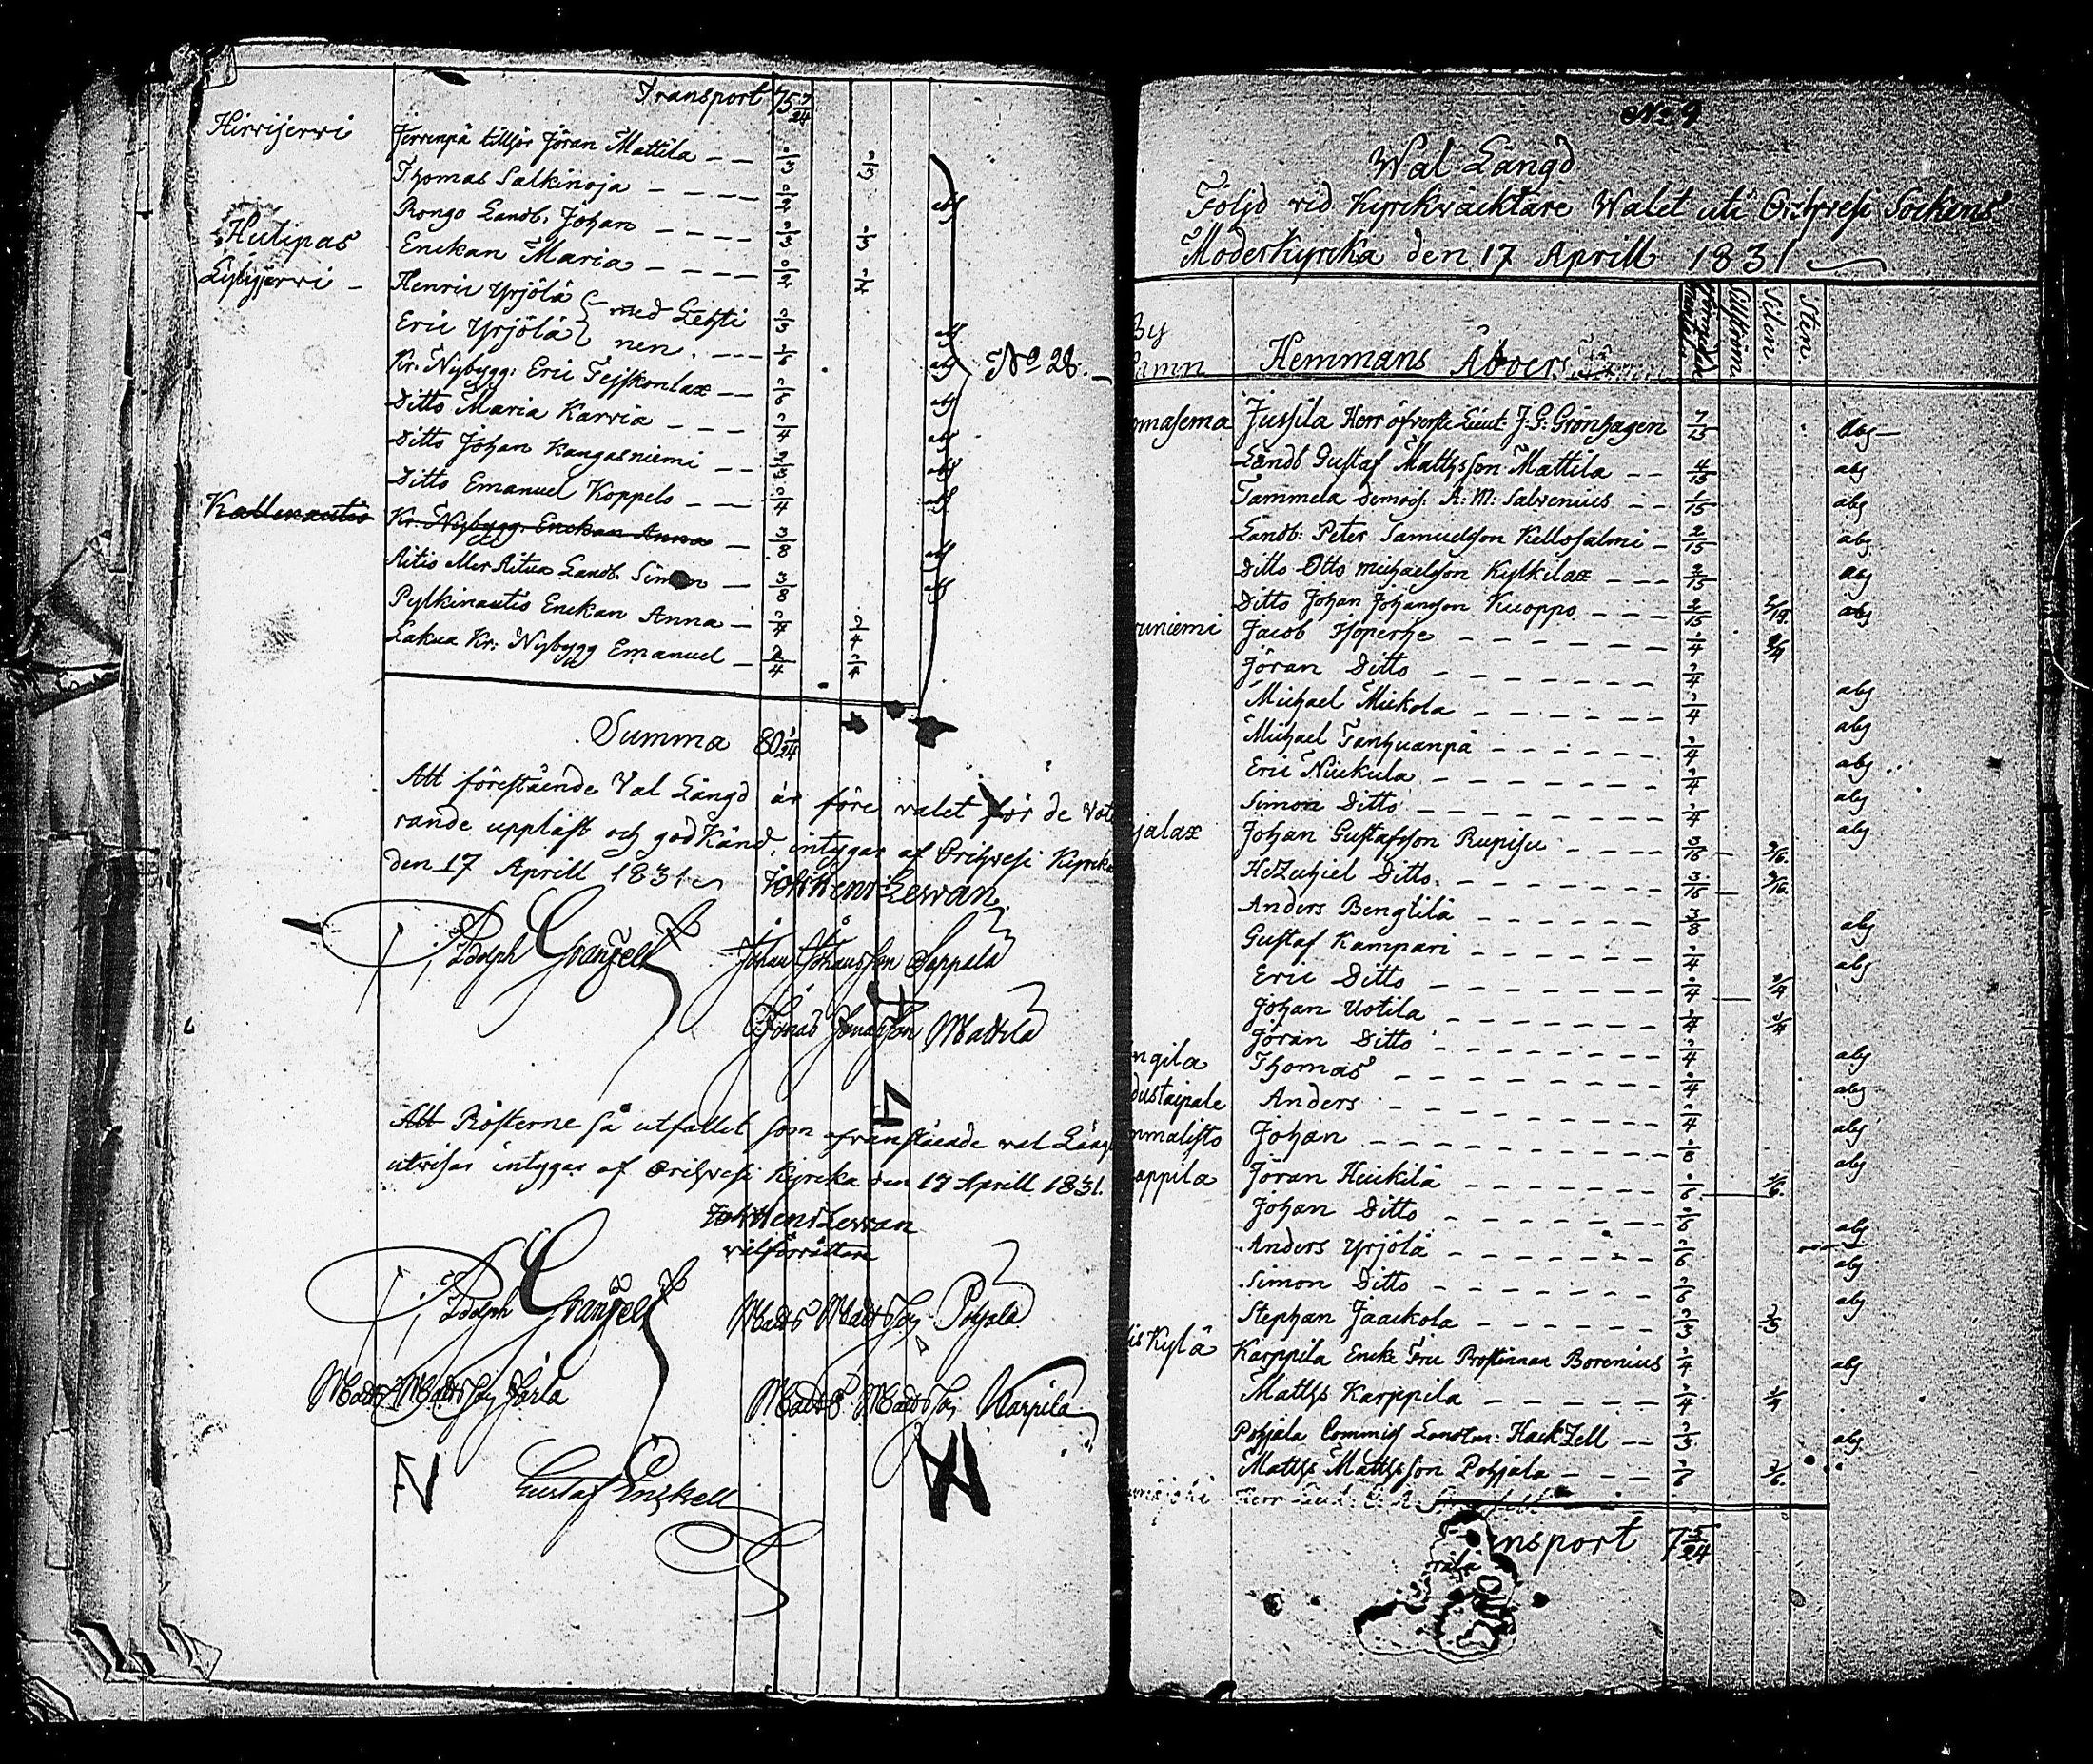 Transport 75 7/24
Hirvijervi Jervenpä tillhör Jöran Mattila — — 1/3 1/3
Thomas Salkinoja — — — — 1/4 abs
Rongo Landb. Johan — — — — 1/3 1/3
Hutipas Enckan Maria — — — — 1/4 1/4
Lyhyjervi — Henric Yrjölä } med Lehti 1/3 abs
Eric Yrjölä } nen. — — — 1/6 abs
Kr. Nybygg: Eric Tejskonlax — — 1/6 abs
Ditto Maria Karvia — — — 1/4 abs
Ditto Johan Kangasniemi — — abs
Ditto Emanuel Koppelo — — — 1/4 abs
Kallenautio Kr. Nybygg. Enckan Anna — 3/8
Aitio Landb. Simon — 3/8 abs
Pylkinautio Enckan Anna — 1/4 1/4
Lakua Kr: Nybygg Emanuel — 2/4 2/4
No 28. —
Summa 80 1/24
Att förestående Val Längd är före valet för de Vote
rande uppläst och godkänd, intygas af Orihvesi Kyrka
den 17 Aprill 1831. Joh Henr Lewan.
Adolph Granfelt Johan Johansson Seppälä
Jonas Jonasson Mattila
Att Rösterne så utfallet som framstående val Läng
utvisar intygas af Orihvesi Kyrcka den 17 Aprill 1831.
Joh Henr Lewan
valförrättare
Adolph Granfelt Matts Mattsson Pohjala
Matts Mattsson Yärlä Matts Mattsson Karpila
Gustaf Enckell
No 9
Wal Längd
Följd vid Kyrkväcktare Walet uti Orihvesi Sockens
Moderkyrka den 17 Aprill 1831
By
namn Hemmans Åboer Sillström Silen. Sten
omasema Jussila Herr öfverste Lieut: J: G: Grönhagen 7/15 Abs —
Landb Gustaf Mathsson Mattila — — 4/15 abs
Tammela Demois. A: M: Salvenius — — 1/15 abs
Landb: Peter Samuelsson Kellosalmi — 2/15 abs
Ditto Otto Michaelsson Kylkilax — — — 2/15 abs
Ditto Johan Johansson Kuoppo — — — 2/15 2/15 abs
uniemi Jacob Hoperhe — — — — — — 1/4 1/4
Jöran Ditto — — — — — — — 1/4 abs
Michael Mickola — — — — — — 1/4 abs
Michael Tanhuanpä — — — — — — 1/4 abs
Eric Nickula — — — — — — — 1/4 abs
Simon Ditto — — — — — — — 1/4 abs
jalax Johan Gustafsson Rupisu — — — — 3/16 — 3/16.
Hezechiel Ditto. — — — — — — 3/16 — 3/16.
Anders Bengtilä — — — — — 3/8 abs
Gustaf Kampari — — — — — 1/4 abs
Eric Ditto — — — — — — — 1/4 — 1/4
Johan Uotila — — — — — — — 1/4 1/4
Jöran Ditto — — — — — — — 1/4 abs
ngila Thomas — — — — — — — — 1/4 abs
dustaipale Anders — — — — — — — — 1/4 abs
mmalisto Johan — — — — — — — — 1/8 abs
appila Jöran Heickilä — — — — — — 1/6 — 1/6.
Johan Ditto — — — — — — — 1/6 abs
Anders Yrjölä — — — — — — 1/6 abs
Simon Ditto — — — — — — — 1/6 abs
Stephan Jaackola — — — — — — 1/3 1/3
is Kylä Karppila Enck: Fru Prostinnan Borenius 1/4 abs
Maths Karppila — — — — — 1/4 1/4
Pohjala Commis Lensm: HackZell — — 1/3 abs
Maths Mathsson Pohjala — — — 1/6 1/6.
nsport 7 5/24